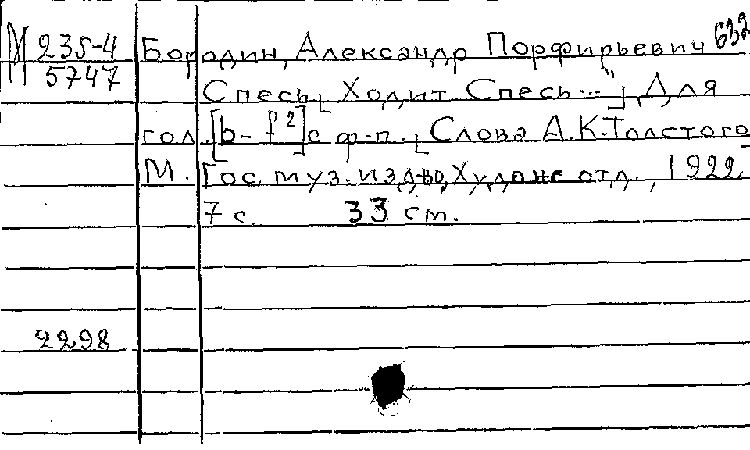 М 235-4 Бородин, Александр Порфирьевич 632
5747 Спесь. [Ходит Спесь..."] Для
гол. [b-f²] с ф-п. [Слова А.К.Толстого
М. Гос. муз. изд-во, Худож. отд., 1922.
7 с. 33 ст.
2298